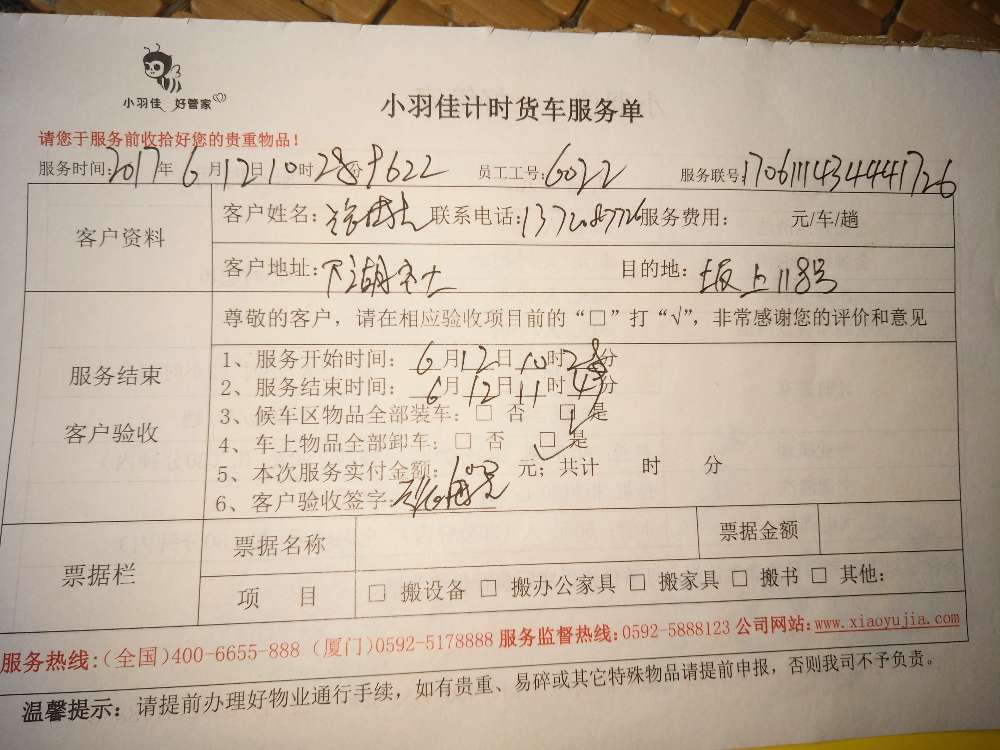 小羽佳 好管家
小羽佳计时货车服务单
请您于服务前收拾好您的贵重物品!
服务时间:2017年6月12日10时28分9622 员工工号:6022 服务联号:1706111434441726
客户资料
客户姓名: 联系电话: 服务费用: 元/车/趟
客户地址: 目的地:坂上118号
服务结束
客户验收
尊敬的客户,请在相应验收项目前的“□”打“√”,非常感谢您的评价和意见
1、服务开始时间: 6月12日10时28分
2、服务结束时间: 6月12日11时 分
3、候车区物品全部装车:□ 否 □ 是
4、车上物品全部卸车:□ 否 □ 是
5、本次服务实付金额:100 元;共计 时 分
6、客户验收签字:
票据栏
票据名称 票据金额
项 目 □ 搬设备 □ 搬办公家具 □ 搬家具 □ 搬书 □ 其他:
服务热线:(全国)400-6655-888 (厦门)0592-5178888 服务监督热线:0592-5888123 公司网站:www.xiaoyujia.com
温馨提示:请提前办理好物业通行手续,如有贵重、易碎或其它特殊物品请提前申报,否则我司不予负责。